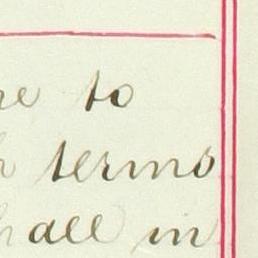 to
terms
shall in